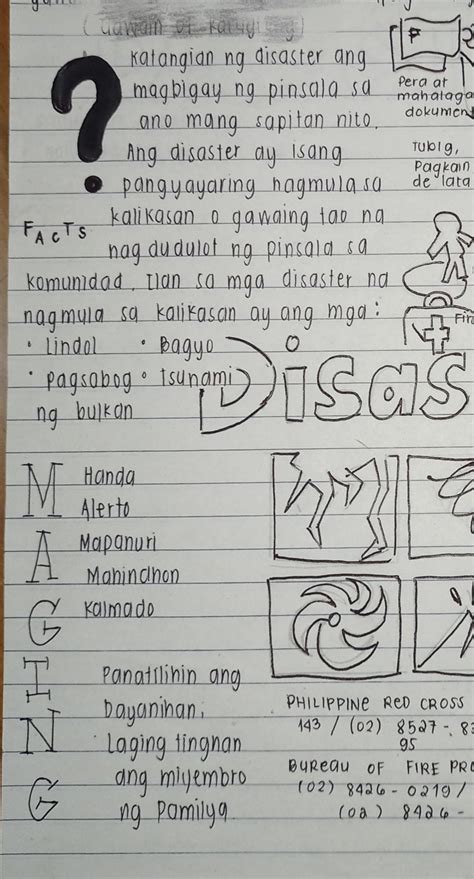 ?
Katangian ng disaster ang
magbigay ng pinsala sa
ano mang sapitan nito.
Ang disaster ay isang
pangyayaring nagmula sa
FACTS
kalikasan o gawaing tao na
nagdudulot ng pinsala sa
komunidad. Ilan sa mga disaster na
nagmula sa kalikasan ay ang mga:
• lindol • Bagyo
• pagsabog • tsunami
ng bulkan
P
Pera at
mahalaga
dokumen
Tubig,
Pagkain
de lata
Fir
Disas
MAGING
Handa
Alerto
Mapanuri
Mahinahon
Kalmado
Panatilihin ang
Bayanihan,
Laging tingnan
ang miyembro
ng Pamilya
PHILIPPINE RED CROSS
143 / (02) 8527-83
95
BUREAU OF FIRE PRO
(02) 8426-0219 /
(02) 8426-